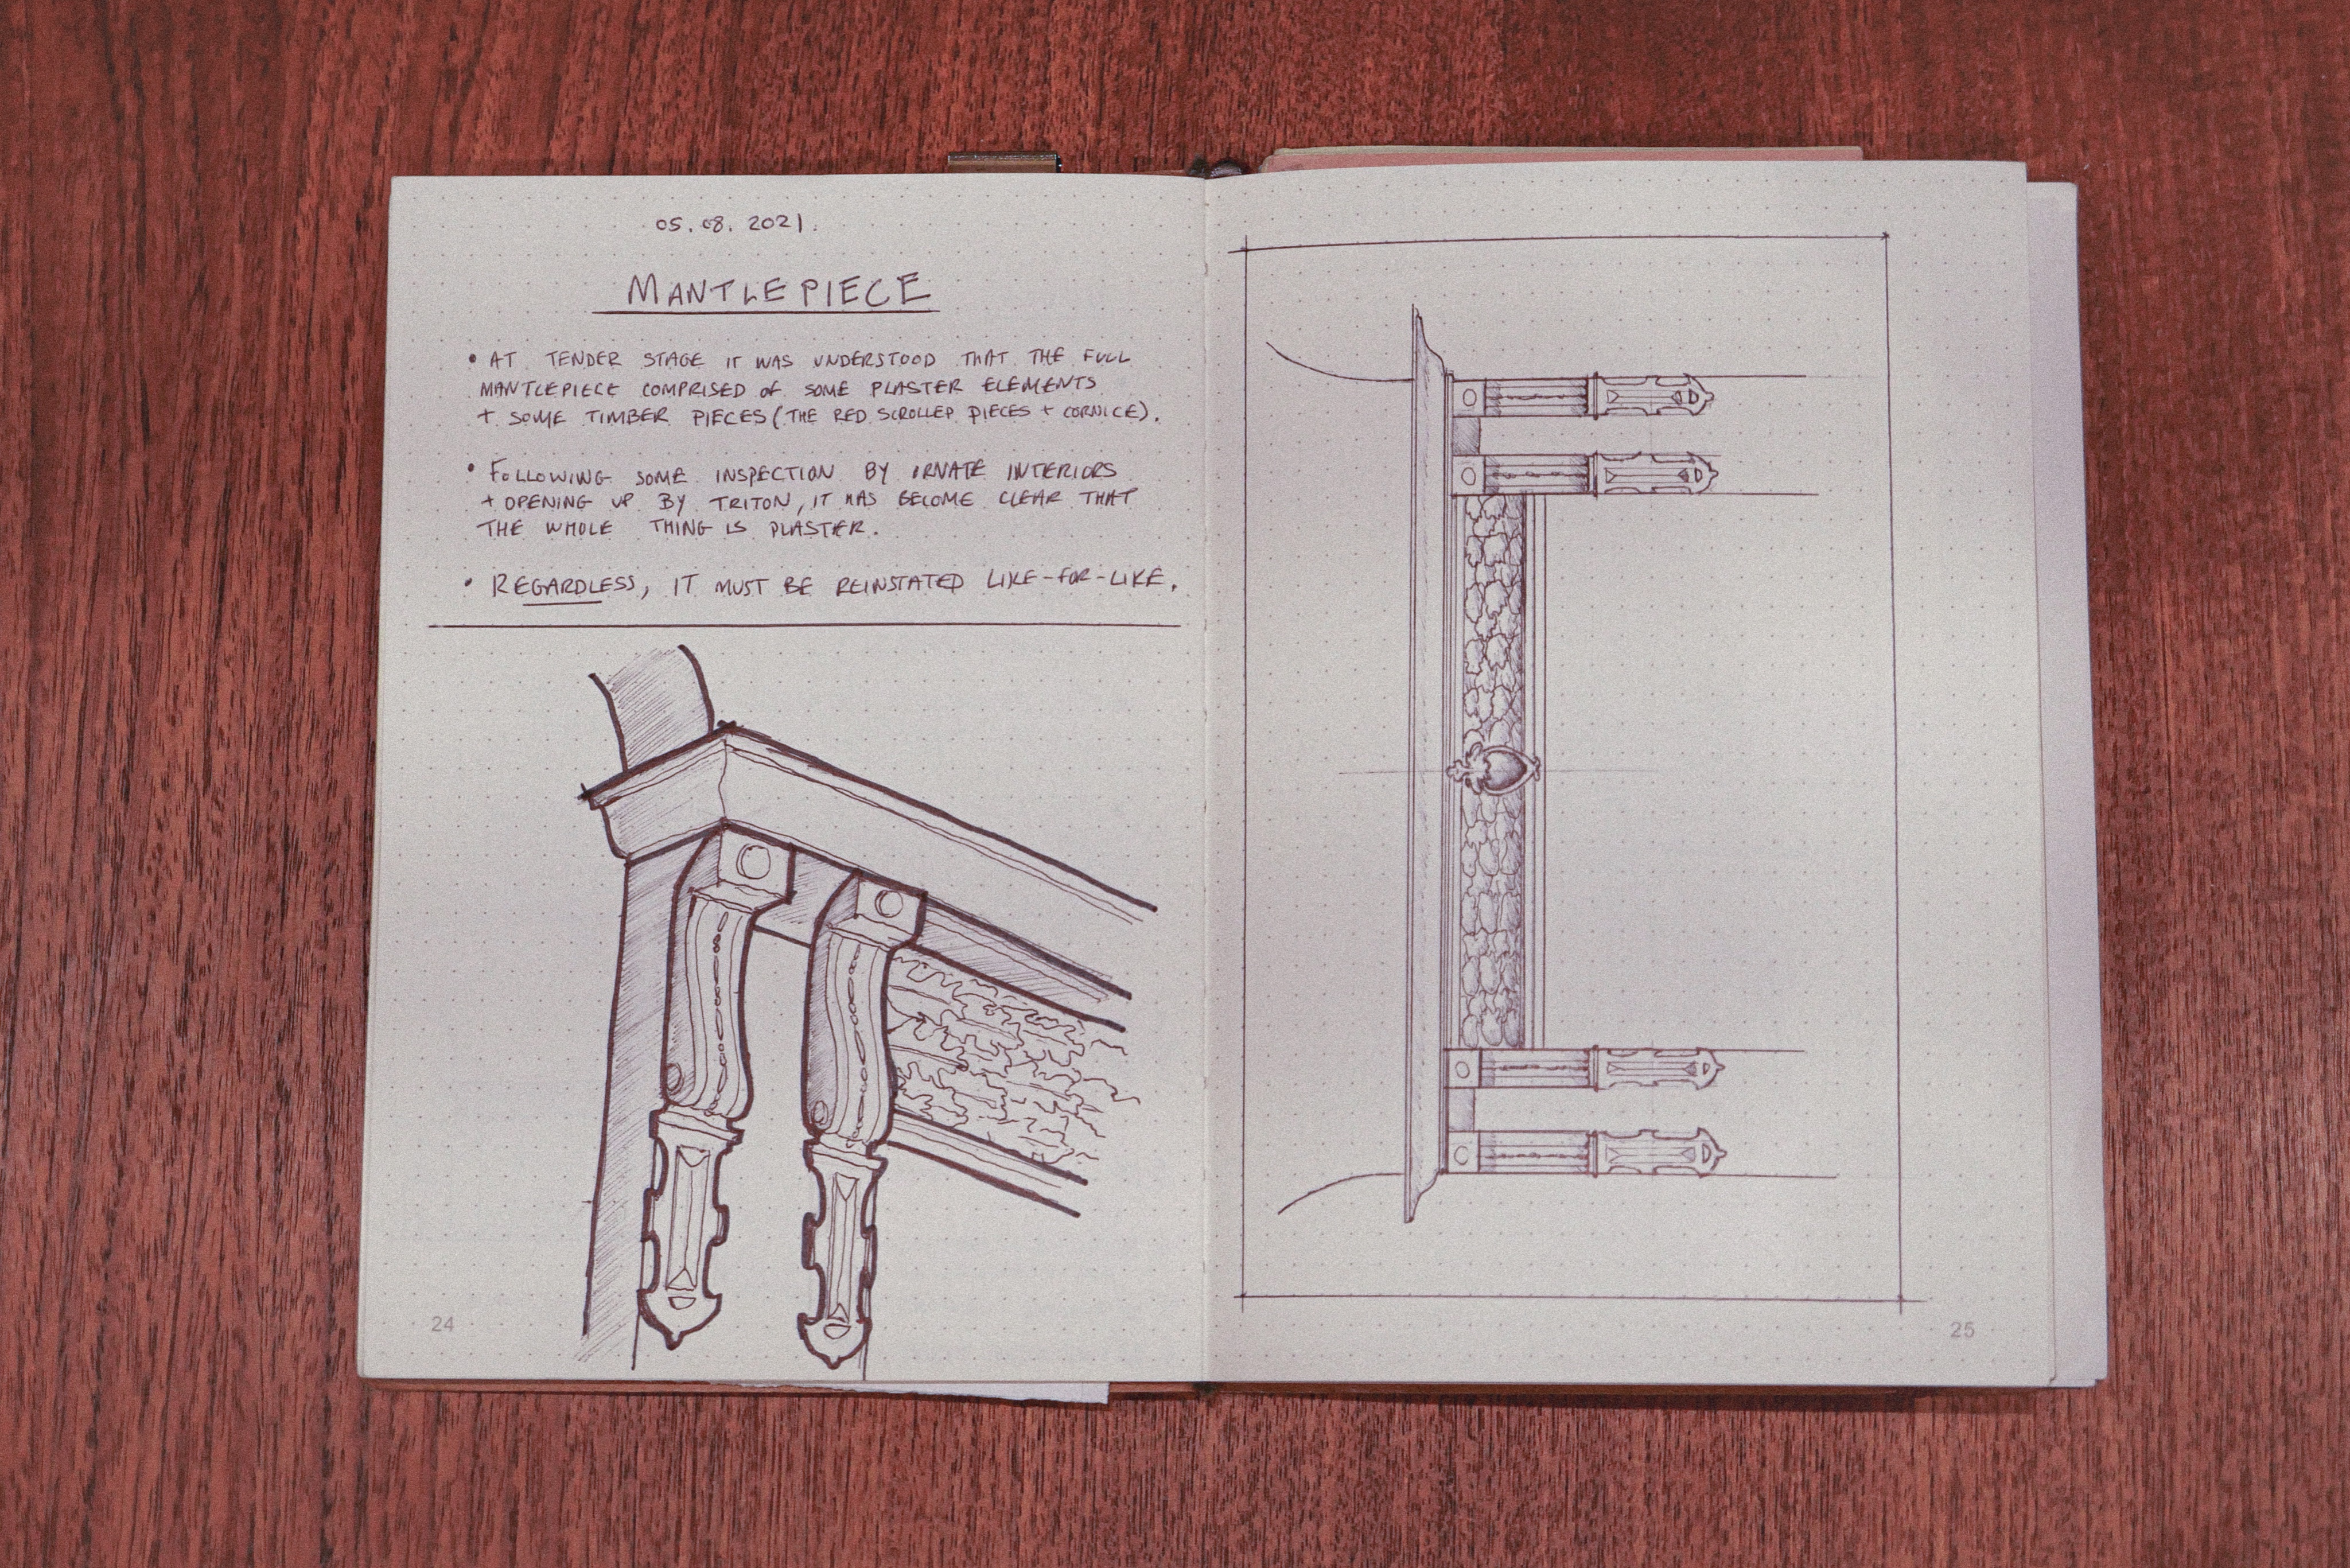 05.08.2021.
MANTLEPIECE
• AT TENDER STAGE IT WAS UNDERSTOOD THAT THE FULL
MANTLEPIECE COMPRISED OF SOME PLASTER ELEMENTS
+ SOME TIMBER PIECES (THE RED SCROLLED PIECES + CORNICE).
• FOLLOWING SOME INSPECTION BY ORNATE INTERIORS
+ OPENING UP BY TRITON, IT HAS BECOME CLEAR THAT
THE WHOLE THING IS PLASTER.
• REGARDLESS, IT MUST BE REINSTATED LIKE-FOR-LIKE.
24
25